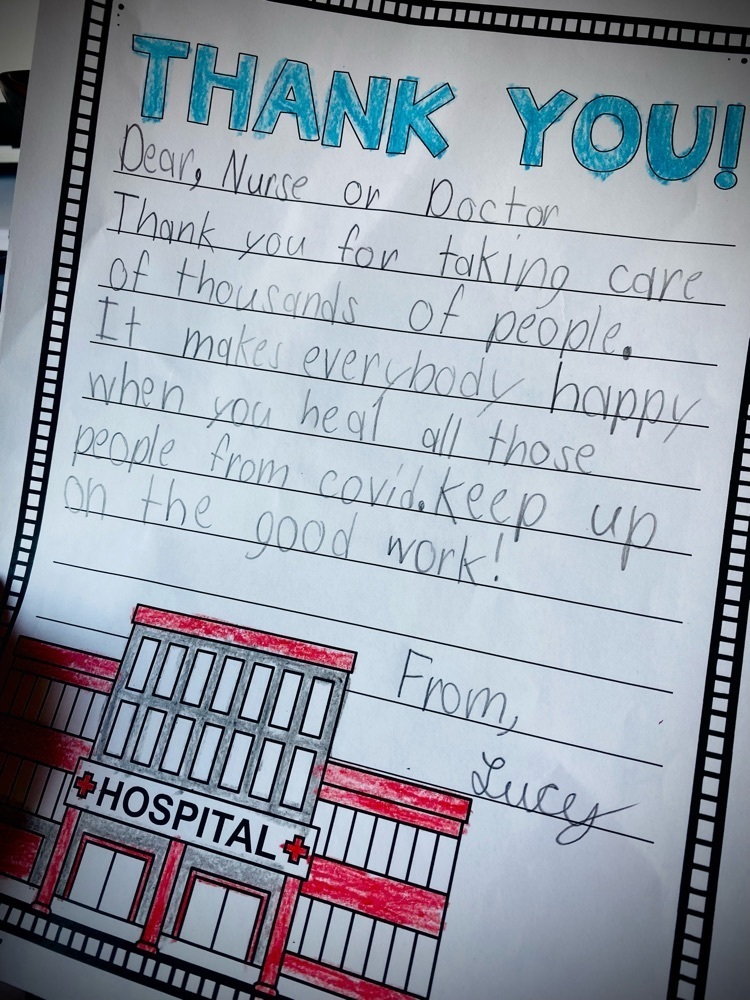 THANK YOU!
Dear, Nurse or Doctor
Thank you for taking care
of thousands of people.
It makes everybody happy
when you heal all those
people from covid. Keep up
on the good work!
From,
Lucy
HOSPITAL